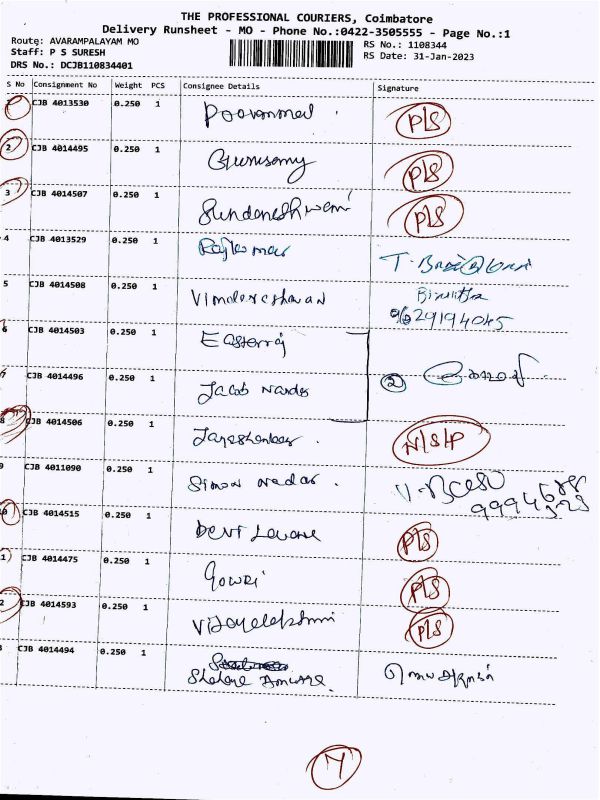 THE PROFESSIONAL COURIERS, Coimbatore
Delivery Runsheet - MO - Phone No.:0422-3505555 - Page No.:1
Route: AVARAMPALAYAM MO
RS No.: 1108344
Staff: P S SURESH
RS Date: 31-Jan-2023
DRS No.: DCJB110834401
S No Consignment No Weight PCS Consignee Details Signature
CJB 4013530 0.250 1 P/S
2 CJB 4014495 0.250 1 Gurusamy P/S
3 CJB 4014507 0.250 1 P/S
4 CJB 4013529 0.250 1 Rajkumar
5 CJB 4014508 0.250 1
9629194045
6 CJB 4014503 0.250 1
7 CJB 4014496 0.250 1 Jacob 2
8 CJB 4014506 0.250 1 N/S/P
9 CJB 4011090 0.250 1 Simon Nadar.
10 CJB 4014515 0.250 1 Devi P/S
CJB 4014475 0.250 1 Gowri P/S
2 CJB 4014593 0.250 1 P/S
CJB 4014494 0.250 1
7